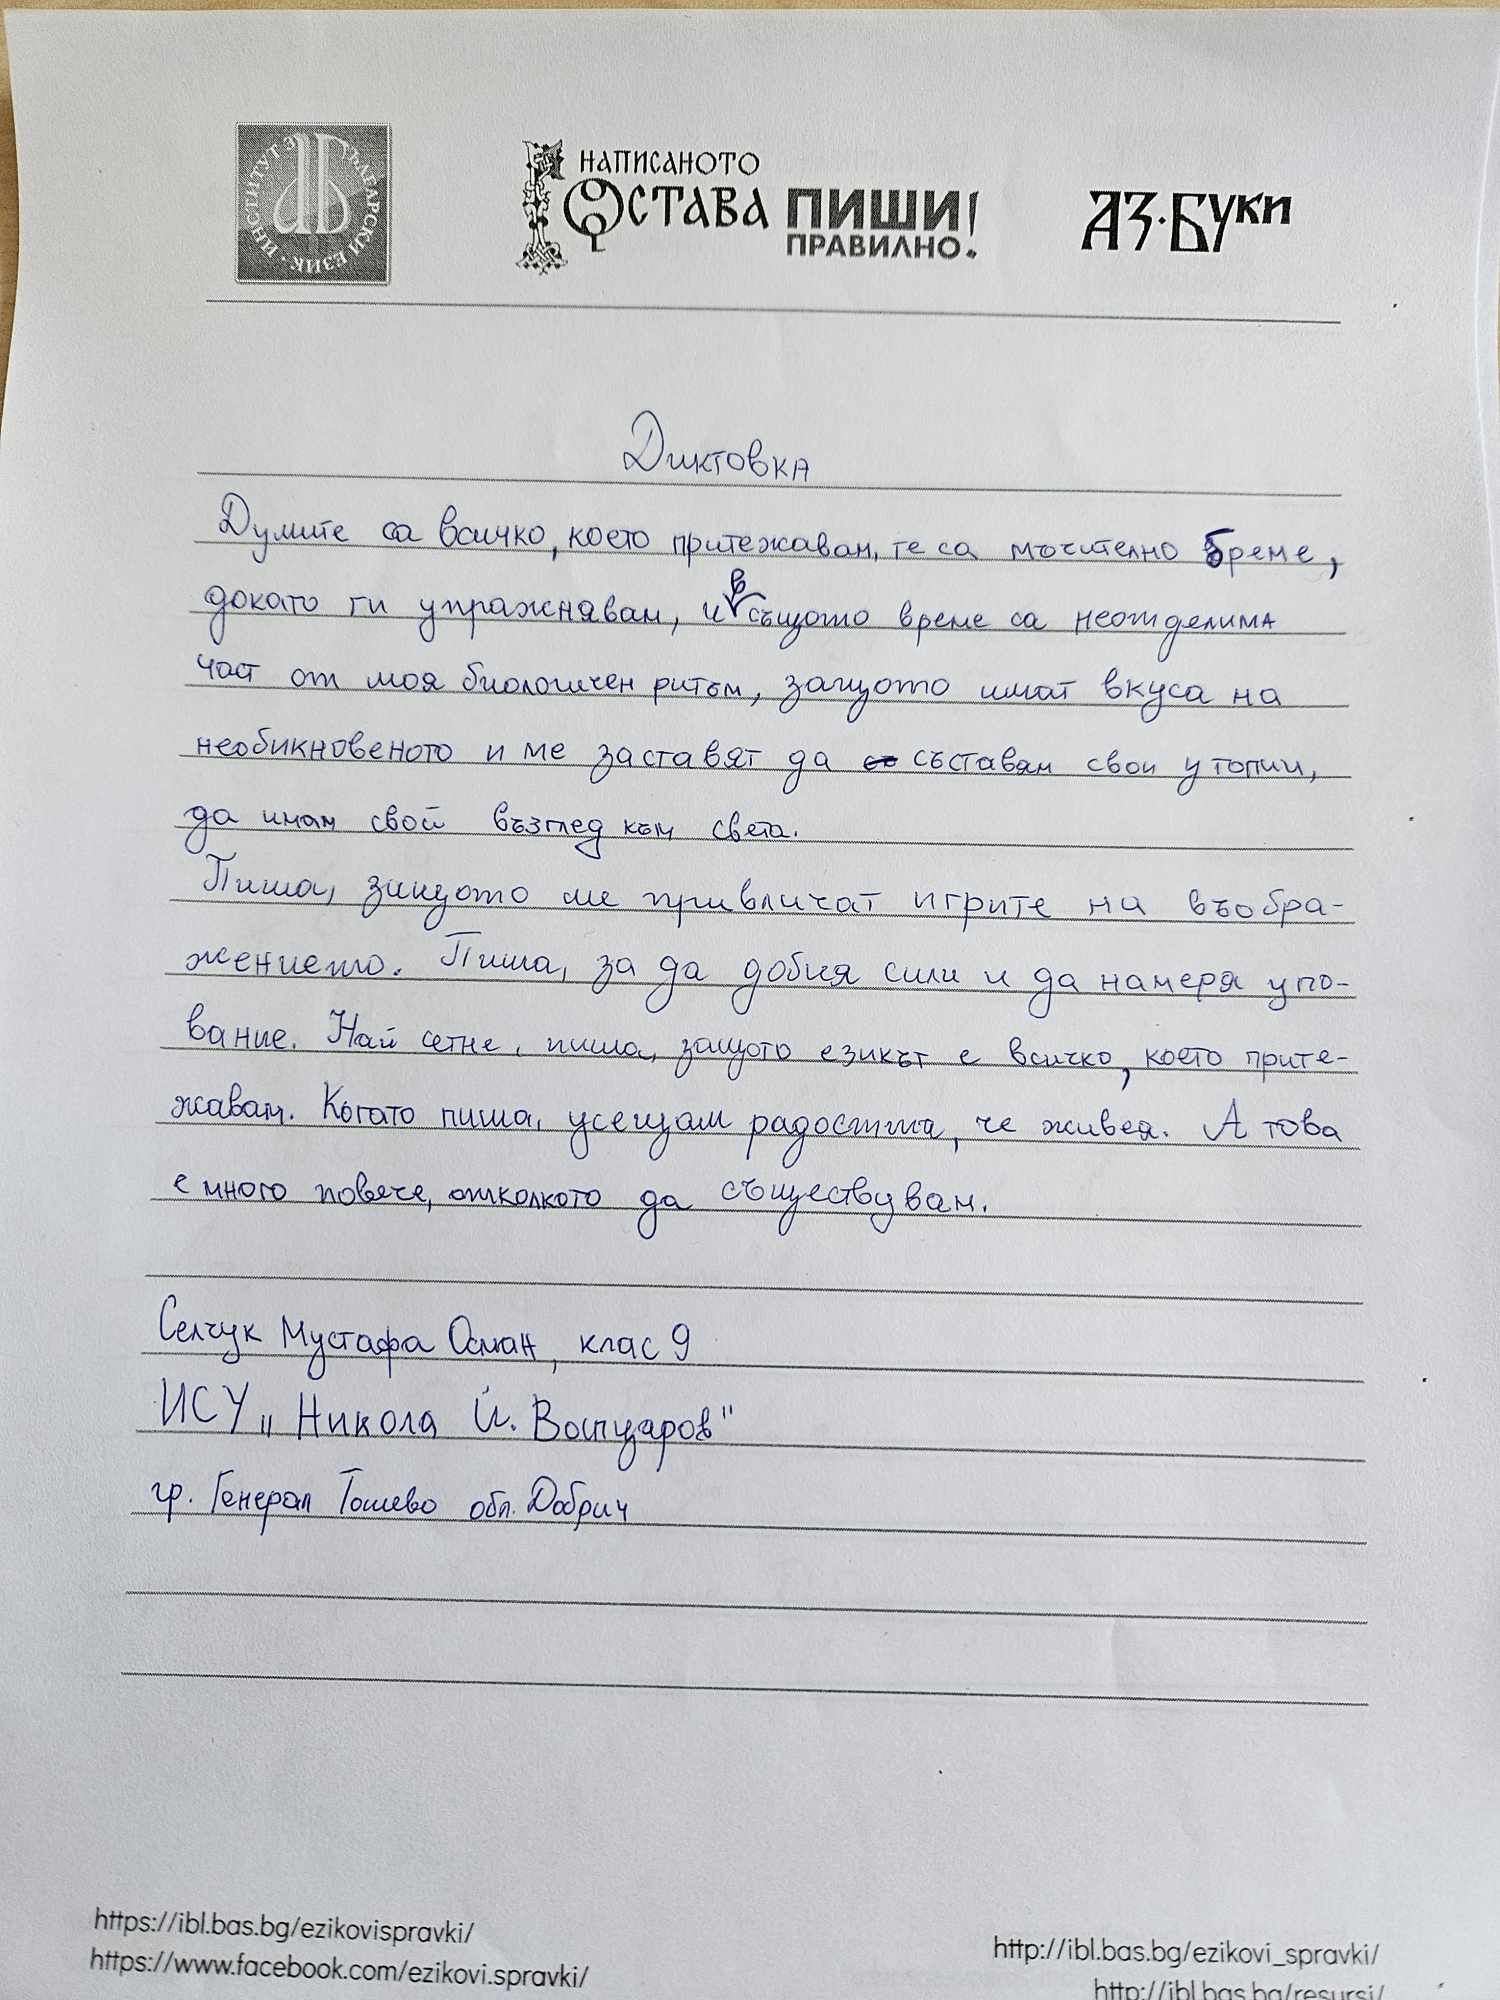 ИНСТИТУТ ЗА БЪЛГАРСКИ ЕЗИК
НАПИСАНОТО
ОСТАВА ПИШИ
ПРАВИЛНО!
АЗ·БУКИ
Диктовка
Думите са всичко, което притежавам, те са мъчително бреме,
докато ги упражнявам, и в същото време са неотделима
част от моя биологичен ритъм, защото имат вкуса на
необикновеното и ме заставят да съставям свои утопии,
да имам свой възглед към света.
Пиша, защото ме привличат игрите на въобра-
жението. Пиша, за да добия сили и да намеря упо-
вание. Най сетне, пиша, защото езикът е всичко, което прите-
жавам. Когато пиша, усещам радостта, че живея. А това
е много повече, отколкото да съществувам.
Селчук Мустафа Осман, клас 9
ИСУ „Никола Й. Вапцаров"
гр. Генерал Тошево обл. Добрич
https://ibl.bas.bg/ezikovispravki/
https://www.facebook.com/ezikovi.spravki/
http://ibl.bas.bg/ezikovi_spravki/
http://ibl.bas.bg/resursi/